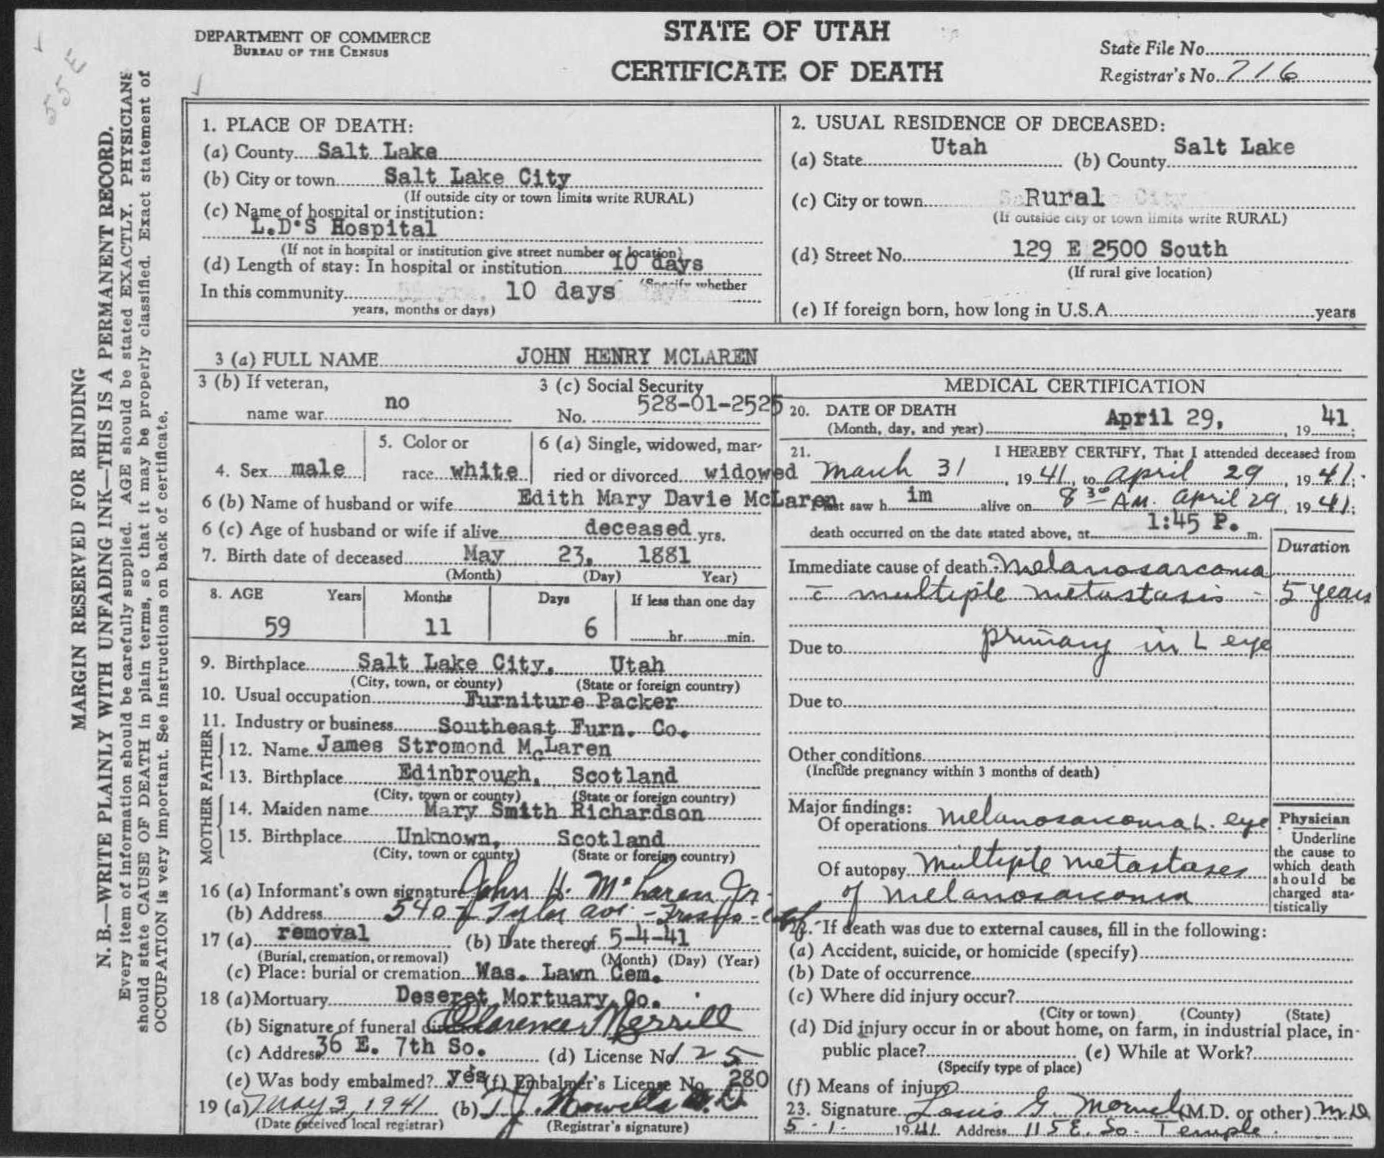 55 E
DEPARTMENT OF COMMERCE
BUREAU OF THE CENSUS
STATE OF UTAH
CERTIFICATE OF DEATH
State File No.
Registrar's No. 716
MARGIN RESERVED FOR BINDING
N. B.—WRITE PLAINLY WITH UNFADING INK—THIS IS A PERMANENT RECORD.
Every item of information should be carefully supplied. AGE should be stated EXACTLY. PHYSICIANS
should state CAUSE OF DEATH in plain terms, so that it may be properly classified. Exact statement of
OCCUPATION is very important. See instructions on back of certificate.
1. PLACE OF DEATH:
(a) County Salt Lake
(b) City or town Salt Lake City
(If outside city or town limits write RURAL)
(c) Name of hospital or institution:
L.D'S Hospital
(If not in hospital or institution give street number or location)
(d) Length of stay: In hospital or institution 10 days
(Specify whether
In this community 10 days
years, months or days)
2. USUAL RESIDENCE OF DECEASED:
(a) State Utah (b) County Salt Lake
(c) City or town Rural
(If outside city or town limits write RURAL)
(d) Street No. 129 E 2500 South
(If rural give location)
(e) If foreign born, how long in U.S.A. years
3 (a) FULL NAME JOHN HENRY MCLAREN
3 (b) If veteran,
name war no
3 (c) Social Security
No. 528-01-2525
4. Sex male
5. Color or
race white
6 (a) Single, widowed, mar-
ried or divorced widowed
6 (b) Name of husband or wife Edith Mary Davie McLaren
6 (c) Age of husband or wife if alive deceased yrs.
7. Birth date of deceased May 23, 1881
(Month) (Day) Year)
8. AGE Years Months Days If less than one day
59 11 6 hr. min.
9. Birthplace Salt Lake City, Utah
(City, town, or county) (State or foreign country)
10. Usual occupation Furniture Packer
11. Industry or business Southeast Furn. Co.
FATHER
12. Name James Stromond McLaren
13. Birthplace Edinbrough, Scotland
(City, town or county) (State or foreign country)
MOTHER
14. Maiden name Mary Smith Richardson
15. Birthplace Unknown, Scotland
(City, town or county) (State or foreign country)
16 (a) Informant's own signature John H. McLaren Jr.
(b) Address 540 Tyler ave - Fresno - Calif.
17 (a) removal (b) Date thereof 5-4-41
(Burial, cremation, or removal) (Month) (Day) (Year)
(c) Place: burial or cremation Was. Lawn Cem.
18 (a) Mortuary Deseret Mortuary Co.
(b) Signature of funeral director Clarence Merrill
(c) Address 36 E. 7th So. (d) License No 125
(e) Was body embalmed? yes (f) Embalmer's License No. 280
19 (a) May 3, 1941 (b) T. J. Howells M.D
(Date received local registrar) (Registrar's signature)
MEDICAL CERTIFICATION
20. DATE OF DEATH
(Month, day, and year) April 29, 19 41;
21. I HEREBY CERTIFY, That I attended deceased from
March 31, 19 41, to April 29, 19 41;
I last saw h im alive on 8 30 AM. April 29, 19 41;
death occurred on the date stated above, at 1:45 P. m.
Duration
Immediate cause of death: Melanosarcoma
c multiple metastasis - 5 years
Due to primary in L eye
Due to
Other conditions
(Include pregnancy within 3 months of death)
Major findings:
Of operations Melanosarcoma L. eye
Of autopsy Multiple metastases
of Melanosarcoma
Physician
Underline
the cause to
which death
should be
charged sta-
tistically
22. If death was due to external causes, fill in the following:
(a) Accident, suicide, or homicide (specify)
(b) Date of occurrence
(c) Where did injury occur?
(City or town) (County) (State)
(d) Did injury occur in or about home, on farm, in industrial place, in-
public place? (e) While at Work?
(Specify type of place)
(f) Means of injury?
23. Signature Louis G. (M.D. or other) M.D
5 - 1 - 19 41 Address 115 E. So. Temple.